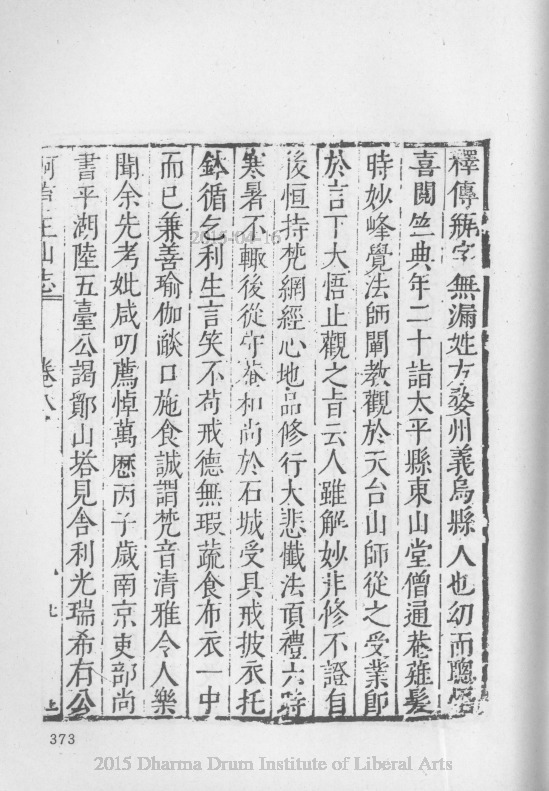 釋傳瓶字無漏姓方婺州義烏縣人也幼而聰
喜閱竺典年二十詣太平縣東山堂僧通菴薙髮
時妙峰覺法師闡教觀於天台山師從之受業即
於言下大悟止觀之旨云人雖解妙非修不證自
後恒持梵網經心地品修行大悲懺法頂禮六時
寒暑不輟後從守菴和尚於石城受具戒披衣托
鉢循乞利生言笑不苟戒德無瑕蔬食布衣一中
而已兼善瑜伽燄口施食誠謂梵音清雅令人樂
聞余先考妣咸叨薦悼萬歷丙子歲南京吏部尚
書平湖陸五臺公謁鄮山塔見舍利光瑞希有公
阿育王山志 卷八 上
2015-04-16
373
2015 Dharma Drum Institute of Liberal Arts